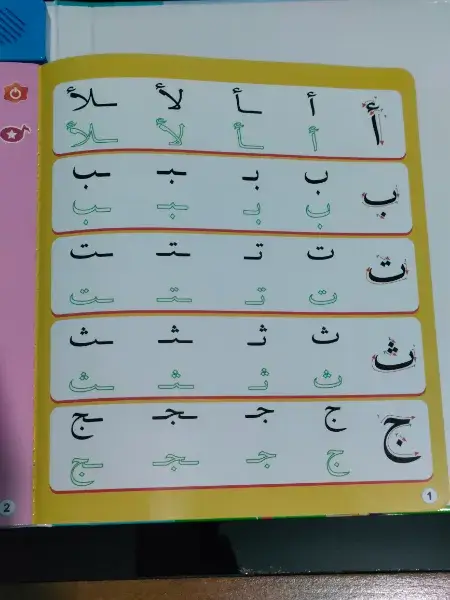 أ أ ـأ لأ ـلأ
أ ـأ لأ ـلأ
ب ب بـ ـبـ ـب
ب بـ ـبـ ـب
ت ت تـ ـتـ ـت
ت تـ ـتـ ـت
ث ث ثـ ـثـ ـث
ث ثـ ـثـ ـث
ج ج جـ ـجـ ـج
ج جـ ـجـ ـج
1
2